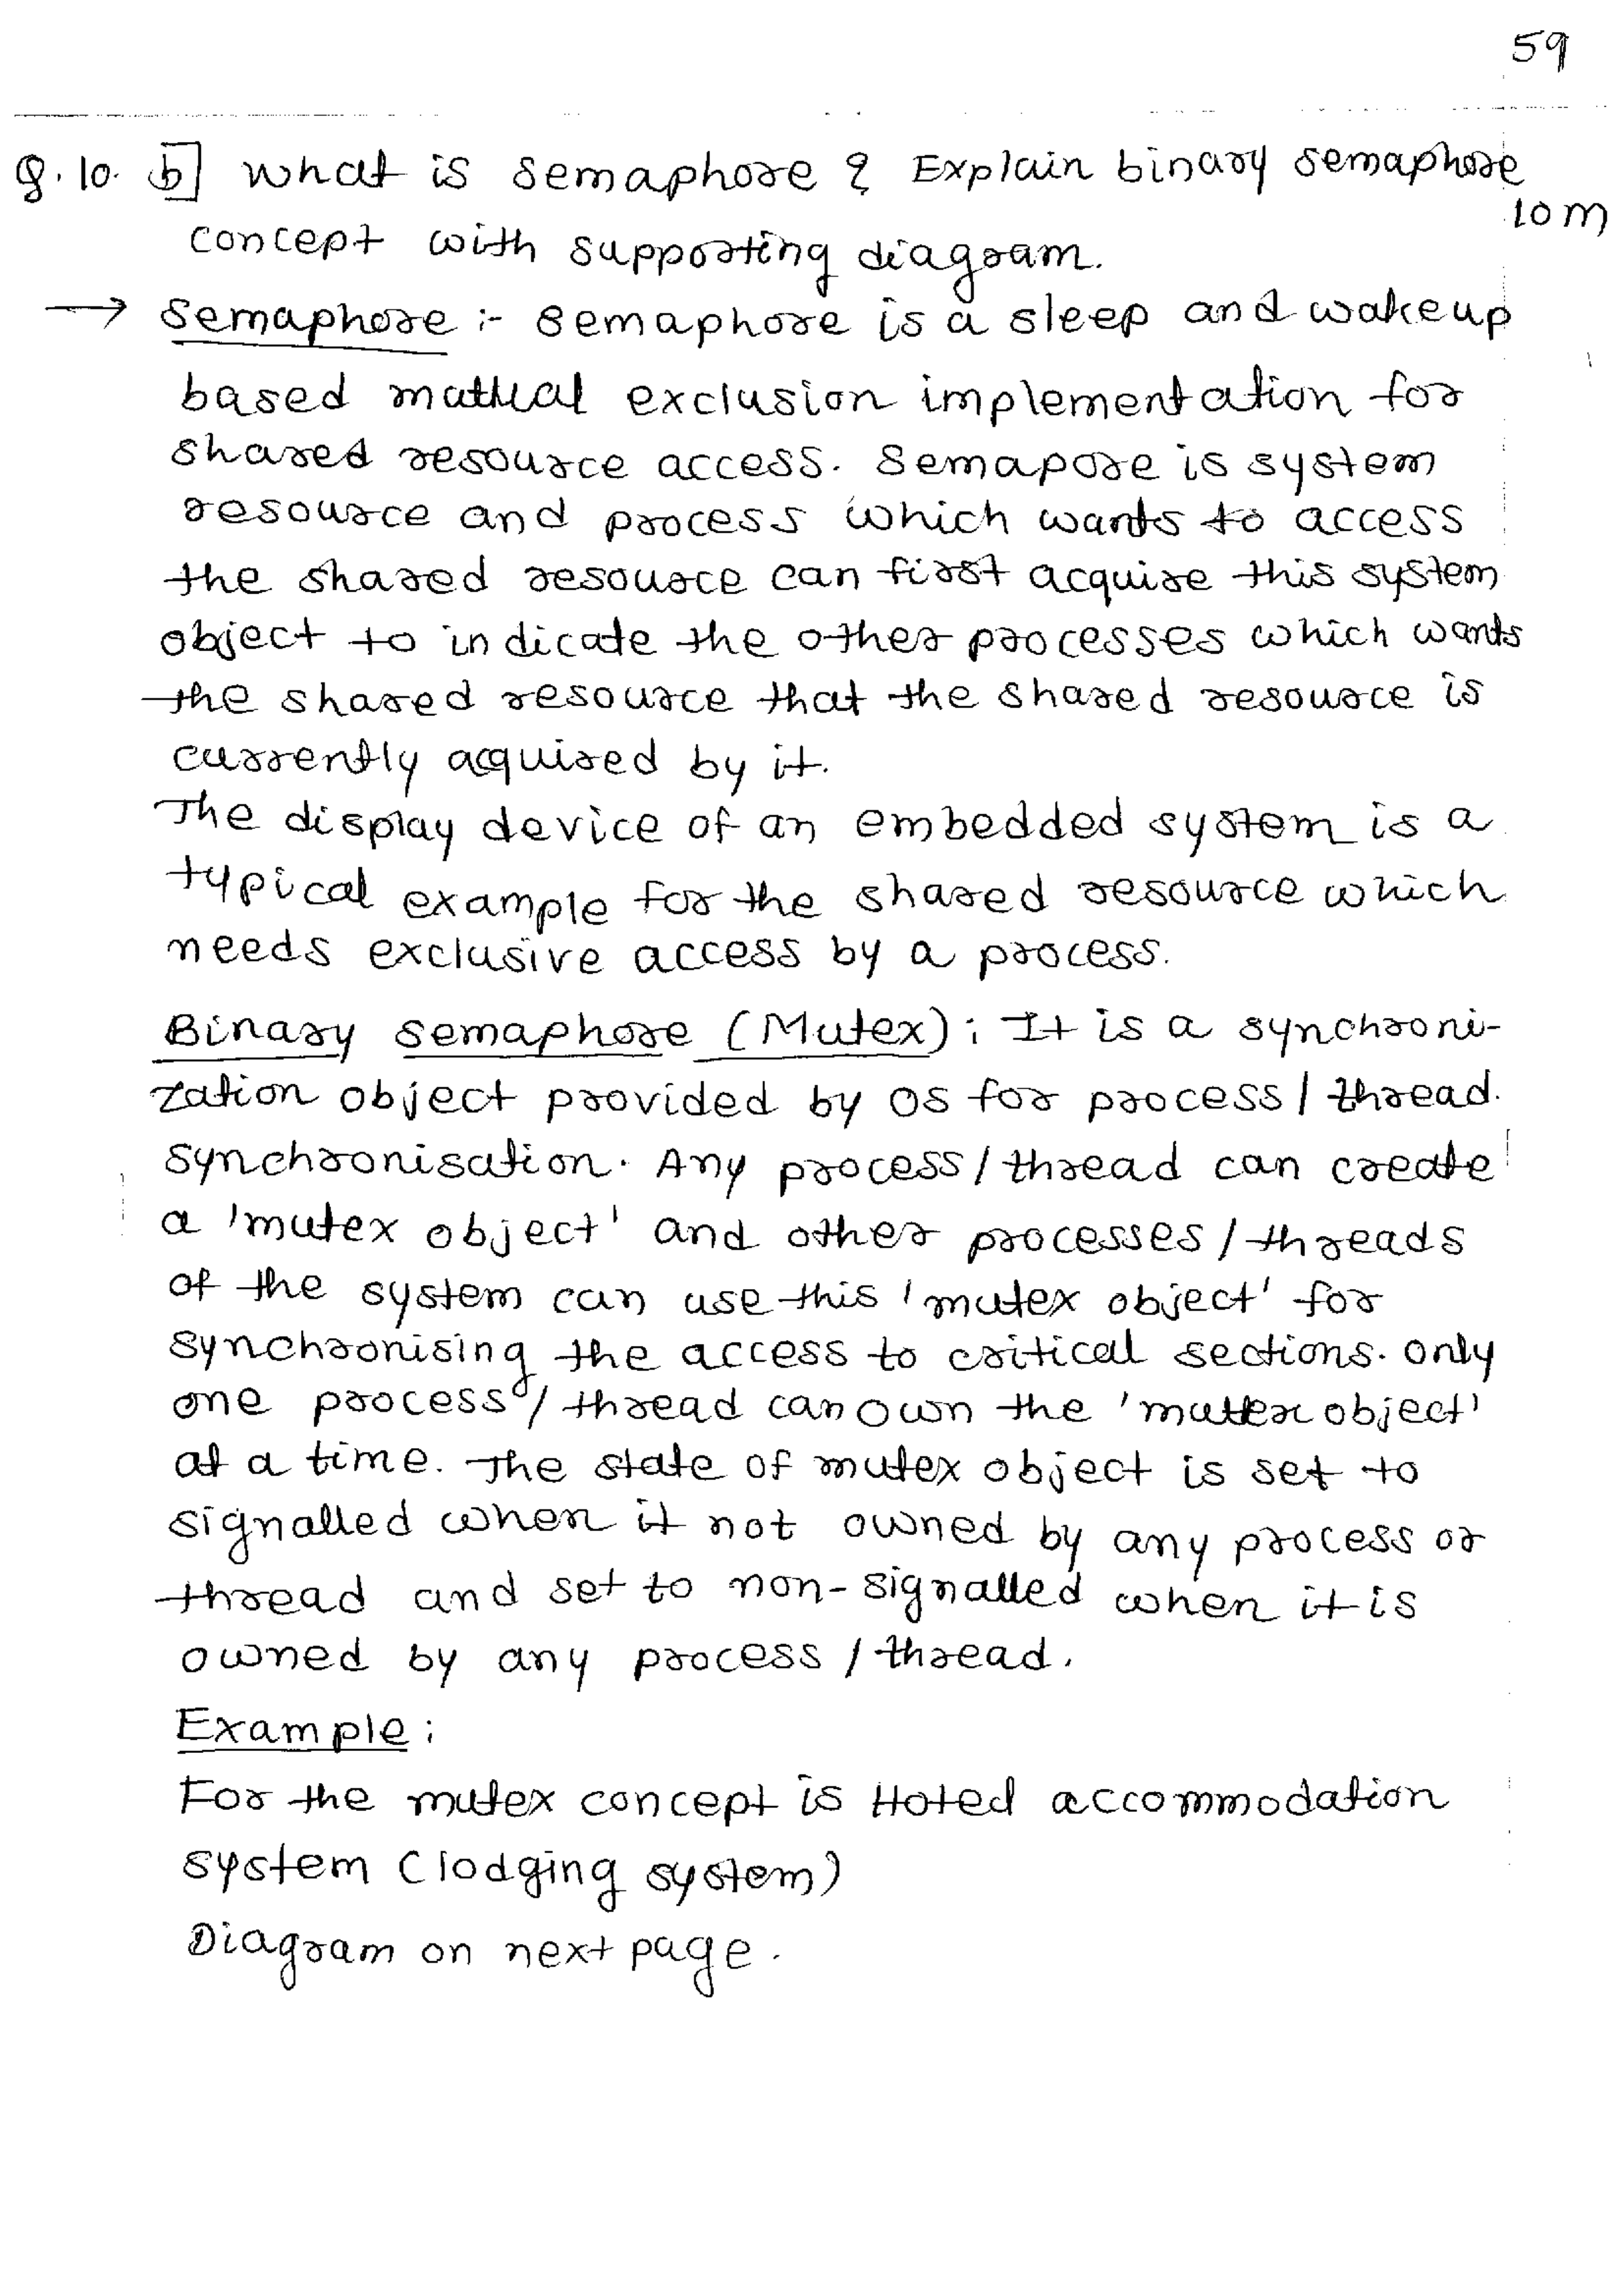 59
Q.10. b] What is semaphore ? Explain binary semaphore
10m
concept with supporting diagram.
→ Semaphore :- Semaphore is a sleep and wakeup
based mutual exclusion implementation for
shared resource access. Semapore is system
resource and process which wants to access
the shared resource can first acquire this system
object to indicate the other processes which wants
the shared resource that the shared resource is
currently acquired by it.
The display device of an embedded system is a
typical example for the shared resource which
needs exclusive access by a process.
Binary semaphore (Mutex) : It is a synchroni-
zation object provided by OS for process / thread.
synchronisation. Any process / thread can create
a 'mutex object' and other processes / threads
of the system can use this 'mutex object' for
synchronising the access to critical sections. only
one process / thread can own the 'mutex object'
at a time. The state of mutex object is set to
signalled when it not owned by any process or
thread and set to non-signalled when it is
owned by any process / thread.
Example :
For the mutex concept is Hoted accommodation
system (lodging system)
Diagram on next page.